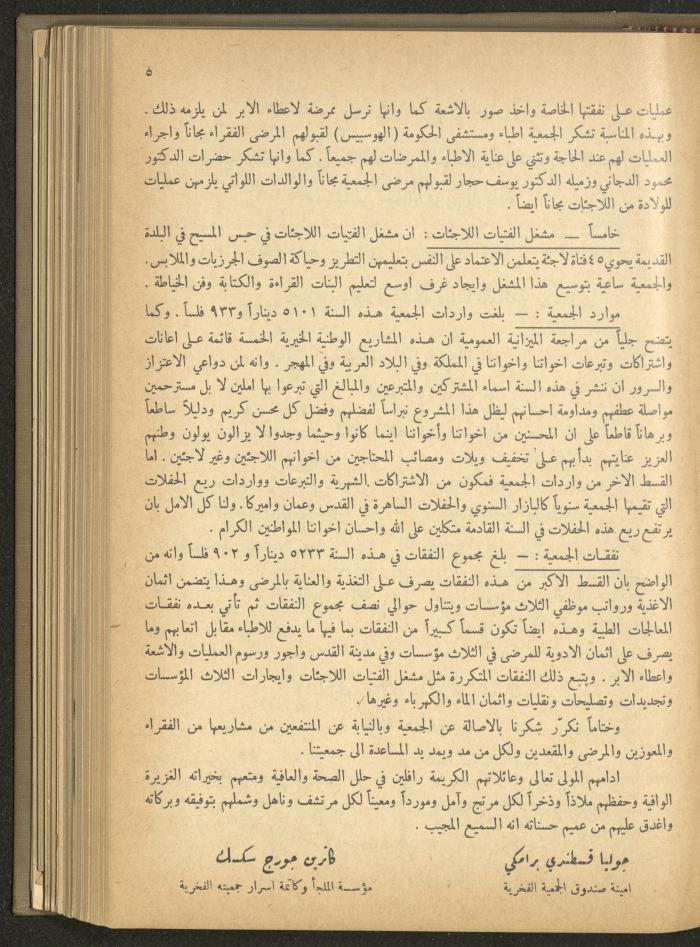 ٥
عمليات على نفقتها الخاصة واخذ صور بالاشعة كما وانها ترسل ممرضة لاعطاء الابر لمن يلزمه ذلك .
وبهذه المناسبة تشكر الجمعية اطباء ومستشفى الحكومة (الهوسبيس) لقبولهم المرضى الفقراء مجاناً واجراء
العمليات لهم عند الحاجة وتثني على عناية الاطباء والممرضات لهم جميعاً . كما وانها تشكر حضرات الدكتور
محمود الدجاني وزميله الدكتور يوسف حجار لقبولهم مرضى الجمعية مجاناً والوالدات اللواتي يلزمهن عمليات
للولادة من اللاجئات مجاناً ايضاً .
خامساً — مشغل الفتيات اللاجئات : ان مشغل الفتيات اللاجئات في حبس المسيح في البلدة
القديمة يحوي ٤٥ فتاة لاجئة يتعلمن الاعتماد على النفس بتعليمهن التطريز وحياكة الصوف الجرزيات والملابس .
والجمعية ساعية بتوسيع هذا المشغل وايجاد غرف اوسع لتعليم البنات القراءة والكتابة وفن الخياطة .
موارد الجمعية : — بلغت واردات الجمعية هذه السنة ٥١٠١ ديناراً و٩٣٣ فلساً . وكما
يتضح جلياً من مراجعة الميزانية العمومية ان هذه المشاريع الوطنية الخيرية الخمسة قائمة على اعانات
واشتراكات وتبرعات اخواتنا واخواننا في المملكة وفي البلاد العربية وفي المهجر . وانه لمن دواعي الاعتزاز
والسرور ان ننشر في هذه السنة اسماء المشتركين والمتبرعين والمبالغ التي تبرعوا بها املين لا بل مسترحمين
مواصلة عطفهم ومداومة احسانهم ليظل هذا المشروع نبراساً لفضلهم وفضل كل محسن كريم ودليلاً ساطعاً
وبرهاناً قاطعاً على ان المحسنين من اخواتنا وأخواننا اينما كانوا وحيثما وجدوا لا يزالون يولون وطنهم
العزيز عنايتهم بدأبهم على تخفيف ويلات ومصائب المحتاجين من اخوانهم اللاجئين وغير لاجئين . اما
القسط الاخر من واردات الجمعية فمكون من الاشتراكات الشهرية والتبرعات وواردات ريع الحفلات
التي تقيمها الجمعية سنوياً كالبازار السنوي والحفلات الساهرة في القدس وعمان واميركا . ولنا كل الامل بان
يرتفع ريع هذه الحفلات في السنة القادمة متكلين على الله واحسان اخواننا المواطنين الكرام .
نفقات الجمعية : — بلغ مجموع النفقات في هذه السنة ٥٢٣٣ ديناراً و ٩٠٢ فلساً وانه من
الواضح بان القسط الاكبر من هذه النفقات يصرف على التغذية والعناية بالمرضى وهذا يتضمن اثمان
الاغذية ورواتب موظفي الثلاث مؤسسات ويتناول حوالي نصف مجموع النفقات ثم تأتي بعده نفقات
المعالجات الطبية وهذه ايضاً تكون قسماً كبيراً من النفقات بما فيها ما يدفع للاطباء مقابل اتعابهم وما
يصرف على اثمان الادوية للمرضى في الثلاث مؤسسات وفي مدينة القدس واجور ورسوم العمليات والاشعة
واعطاء الابر . ويتبع ذلك النفقات المتكررة مثل مشغل الفتيات اللاجئات وايجارات الثلاث المؤسسات
وتجديدات وتصليحات ونقليات واثمان الماء والكهرباء وغيرها .
وختاماً نكرّر شكرنا بالاصالة عن الجمعية وبالنيابة عن المنتفعين من مشاريعها من الفقراء
والمعوزين والمرضى والمقعدين ولكل من مد ويمد يد المساعدة الى جمعيتنا .
ادامهم المولى تعالى وعائلاتهم الكريمة رافلين في حلل الصحة والعافية ومتعهم بخيراته الغزيرة
الوافية وحفظهم ملاذاً وذخراً لكل مرتج وآمل ومورداً ومعيناً لكل مرتشف وناهل وشملهم بتوفيقه وبركاته
واغدق عليهم من عميم حسناته انه السميع المجيب .
جوليا قسطندي برامكي
امينة صندوق الجمعية الفخرية
كاترين جورج سكسك
مؤسسة الملجأ وكاتمة اسرار جمعيته الفخرية